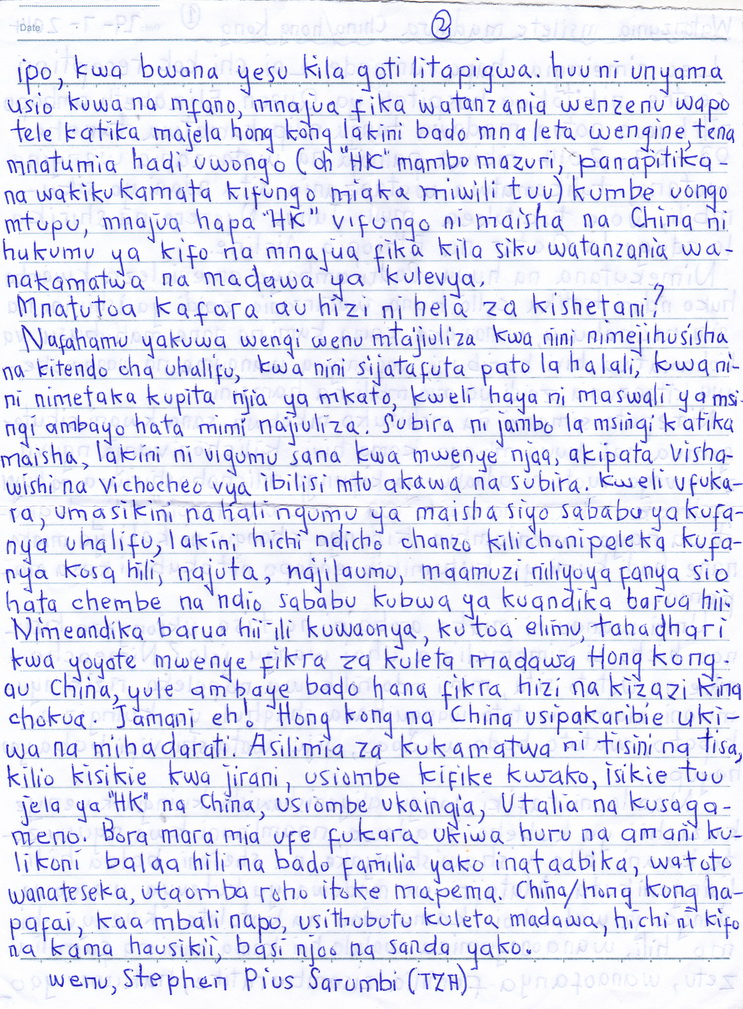 Date
②
ipo, kwa bwana yesu kila goti litapigwa. huu ni unyama
usio kuwa na mfano, mnajua fika watanzania wenzenu wapo
tele katika majela hong kong lakini bado mnaleta wengine, tena
mnatumia hadi uwongo (oh "HK" mambo mazuri, panapitika-
na wakikukamata kifungo miaka miwili tuu) kumbe uongo
mtupu, mnajua hapa "HK" vifungo ni maisha na China ni
hukumu ya kifo na mnajua fika kila siku watanzania wa-
nakamatwa na madawa ya kulevya.
Mnatutoa kafara au hizi ni hela za kishetani?
Nafahamu yakuwa wengi wenu mtajiuliza kwa nini nimejihusisha
na kitendo cha uhalifu, kwa nini sijatafuta pato la halali, kwa ni-
ni nimetaka kupita njia ya mkato, kweli haya ni maswali ya msi-
ngi ambayo hata mimi najiuliza. Subira ni jambo la msingi katika
maisha, lakini ni vigumu sana kwa mwenye njaa, akipata visha-
wishi na vichocheo vya ibilisi mtu akawa na subira. Kweli ufuka-
ra, umasikini na hali ngumu ya maisha siyo sababu ya kufa-
nya uhalifu, lakini hichi ndicho chanzo kilichonipeleka kufa-
nya kosa hili, najuta, najilaumu, maamuzi niliyoya fanya sio
hata chembe na ndio sababu kubwa ya kuandika barua hii.
Nimeandika barua hii ili kuwaonya, kutoa elimu, tahadhari
kwa yoyote mwenye fikra za kuleta madawa Hong kong.
au China, yule ambaye bado hana fikra hizi na kizazi kina
chokua. Jamani eh! Hong kong na China usipakaribie uki-
wa na mihadarati. Asilimia za kukamatwa ni tisini na tisa,
kilio kisikie kwa jirani, usiombe kifike kwako, isikie tuu
jela ya "HK" na China, usiombe ukaingia, Utalia na kusaga-
meno. Bora mara mia ufe fukara ukiwa huru na amani ku-
likoni balaa hili na bado familia yako inataabika, watoto
wanateseka, utaomba roho itoke mapema. China/hong kong ha-
pafai, kaa mbali napo, usithubutu kuleta madawa, hichi ni kifo
na kama hausikii, basi njoo na sanda yako.
wenu, Stephen Pius Sarumbi (TZA)